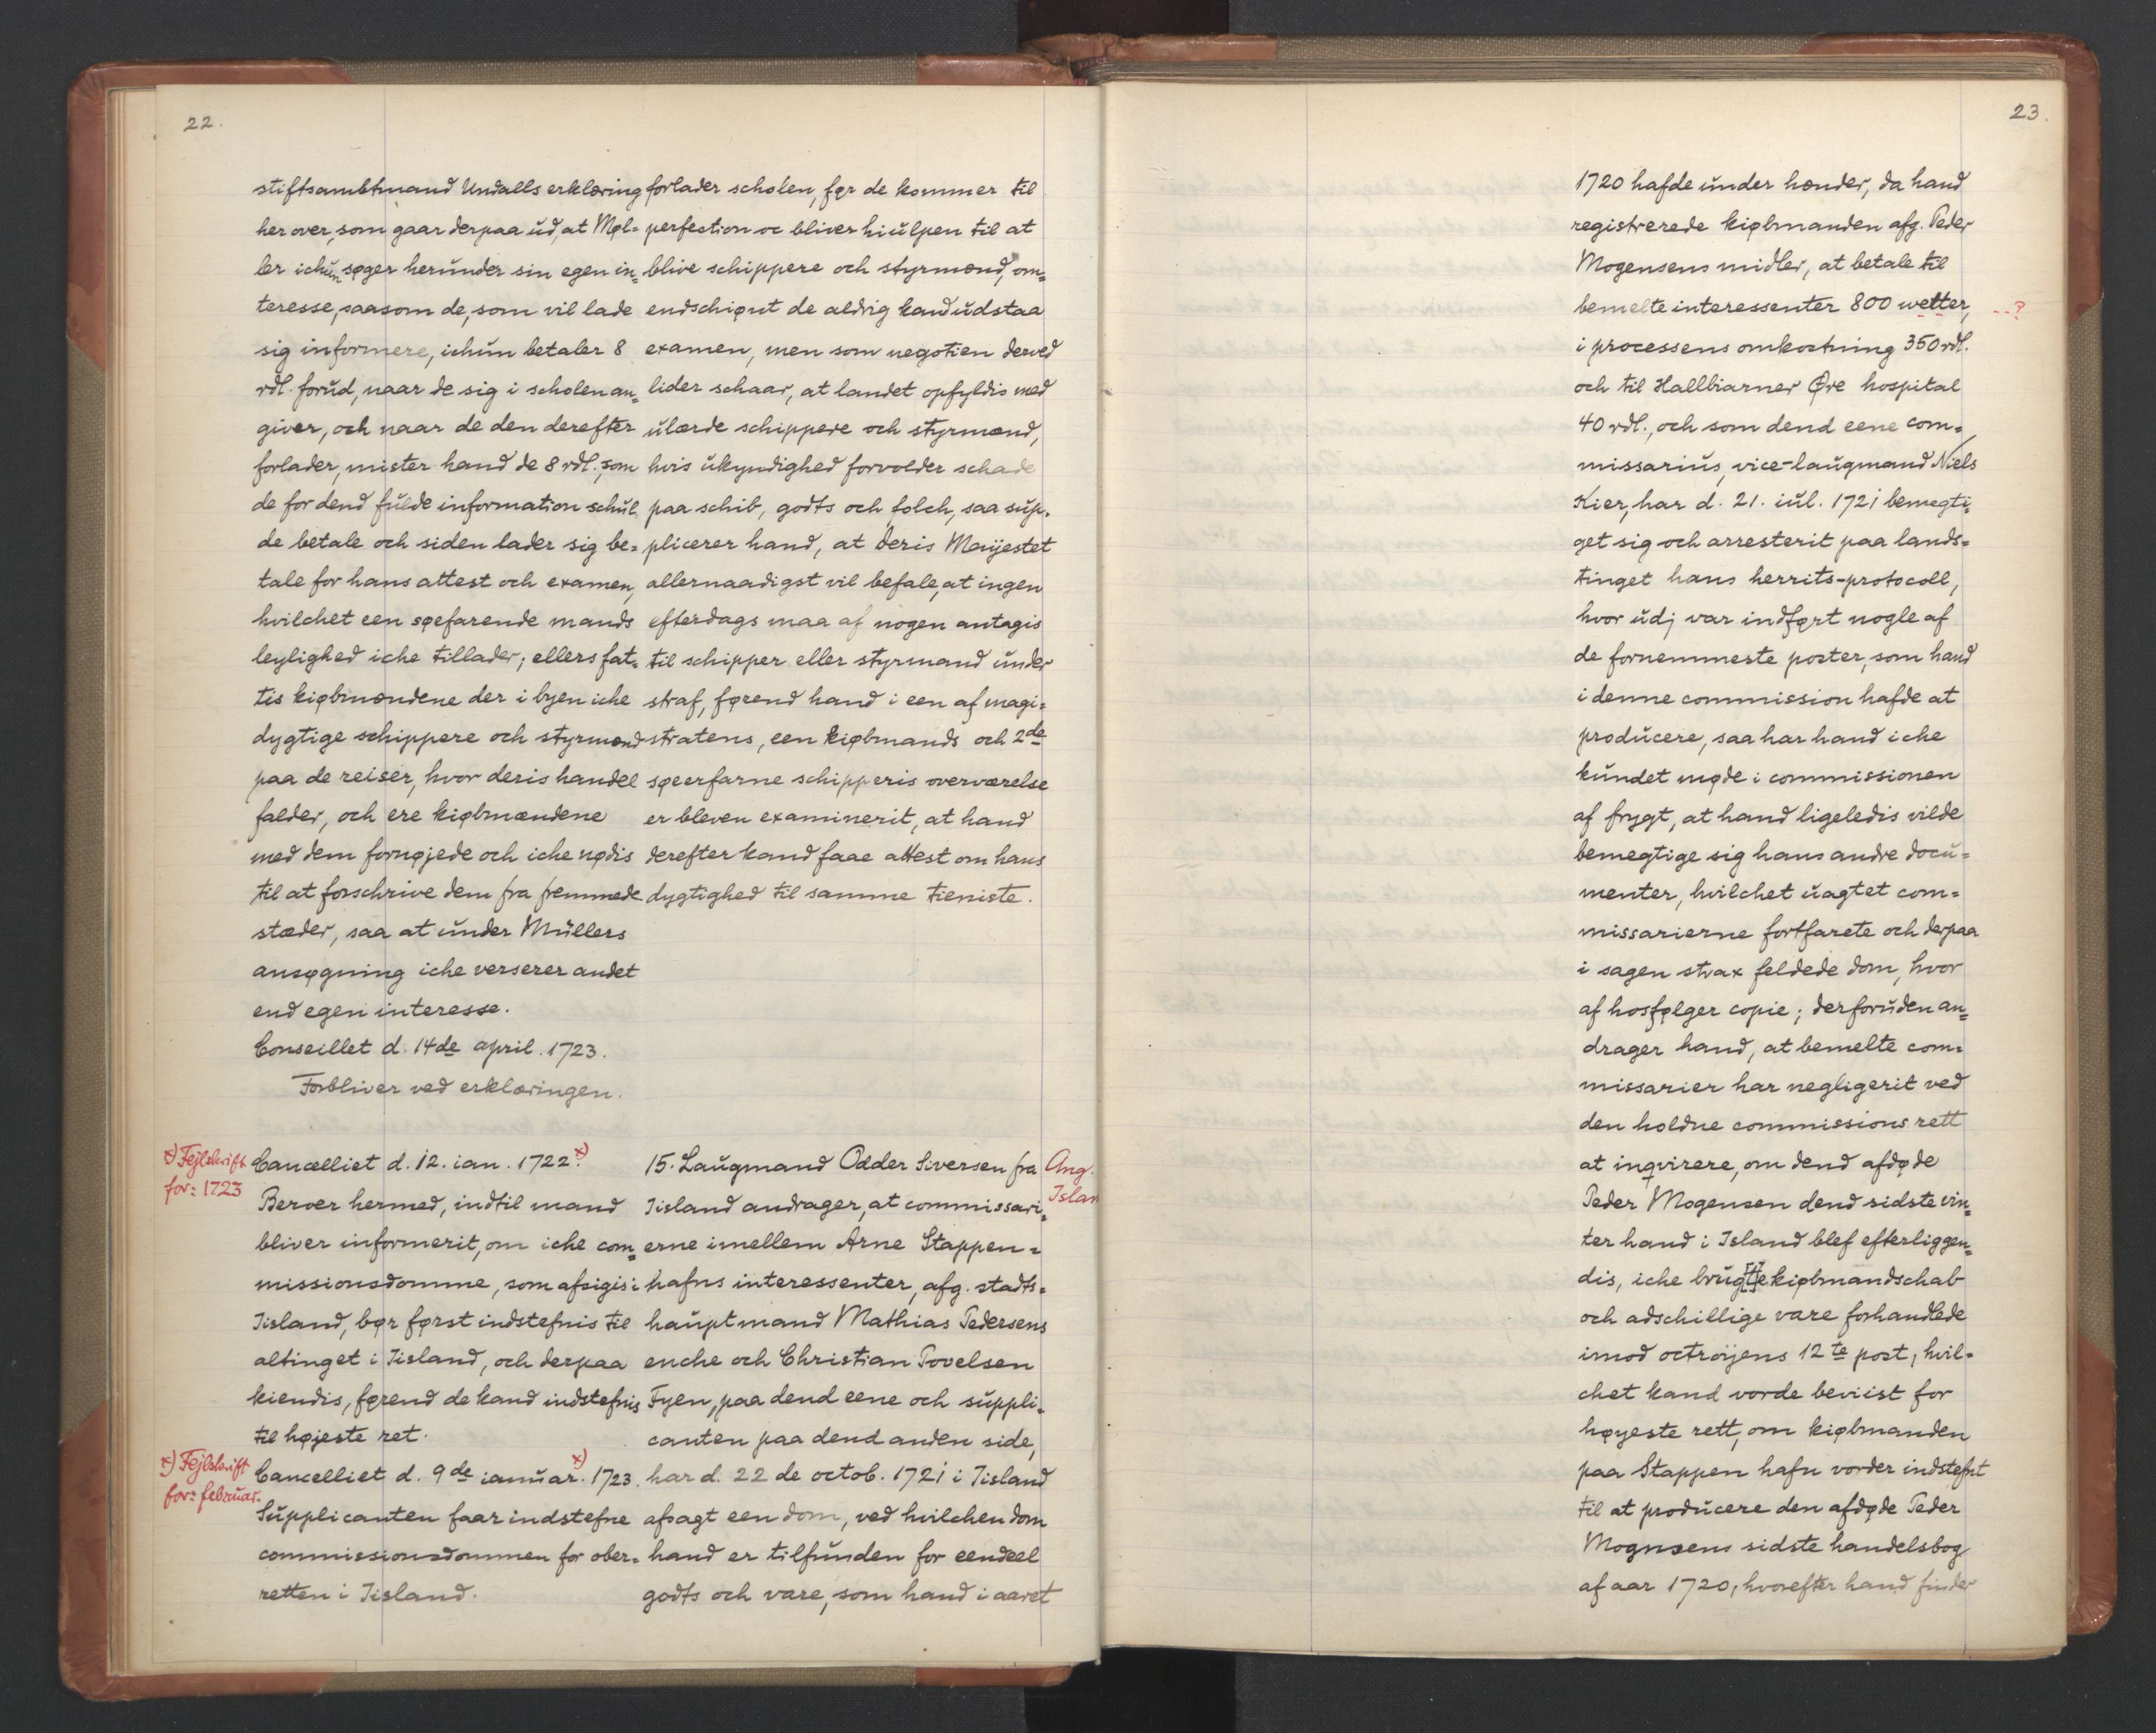 22.
stiftsambtmand Undalls erklæring
herover, som gaar derpaa ud, at Møl=
ler ichun søger herunder sin egen in=
teresse, saasom de, som vil lade
sig informere, ichun betaler 8
rdl. forud, naar de sig i scholen an=
giver, och naar de den derefter
forlader, mister hand de 8 rdl., som
de for dend fulde information schul
de betale och siden lader sig be=
tale for hans attest och examen,
hvilchet een søefarende mands
leylighed iche tillader; ellers fat=
tis kiøbmændene der i byen iche
dygtige schippere och styrmænd
paa de reiser, hvor deris handel
falder, och ere kiøbmændene
med dem fornøjede och iche nødis
til at forschrive dem fra fremmede
stæder, saa at under Müllers
ansøgning iche verserer andet
end egen interesse.
Conseillet d. 14de april 1723.
Forbliver ved erklæringen.
forlader scholen, før de kommer til
perfection oc bliver hiulpen til at
blive schippere och styrmænd, om=
endschiønt de aldrig kand udstaa
examen, men som negotien derved
lider schaar, at landet opfyldis med
ulærde schippere och styrmænd,
hvis ukyndighed forvolder schade
paa schib, godts och folch, saa sup=
plicerer hand, at Deris Mayestet
allernaadigst vil befale, at ingen
efterdags maa af nogen antagis
til schipper eller styrmand under
straf, førend hand i een af magi=
stratens, een kiøbmands och 2de
søeerfarne schipperis overværelse
er bleven examinerit, at hand
derefter kand faae attest om hans
dygtighed til samme tieniste.
x) Fejlskrift
for: 1723
Cancelliet d. 12. ian. 1722. x)
Beroer hermed, indtil mand
bliver informerit, om iche com=
missionsdomme, som afsigis i
Iisland, bør først indstefnis til
altinget i Iisland, och derpaa
kiendis, førend de kand indstefnis
til højeste ret.
x) Fejlskrift
for: februar.
Cancelliet d. 9de ianuar. x) 1723.
Supplicanten faar indstefne
commissionsdommen for ober=
retten i Iisland.
15. Laugmand Odder Siversen fra
Iisland andrager, at commissari=
erne imellem Arne Stappen=
hafns interessenter, afg. stadts=
hauptmand Mathias Pedersens
enche och Christian Povelsen
Fyen, paa dend eene och suppli=
canten paa dend anden side,
har d. 22 de octob. 1721 i Iisland
afsagt een dom, ved hvilchen dom
hand er tilfunden for eendeel
godts och vare, som hand i aaret
Ang.
Islan
23.
1720 hafde under hænder, da hand
registrerede kiøbmanden afg. Peder
Mogensens midler, at betale til
bemelte interessenter 800 wetter, --?
i processens omkostning 350 rdl.
och til Hallbiarner Øre hospital
40 rdl., och som dend eene com=
missarius, vice-laugmand Niels
Kier, har d. 21. iul. 1721 bemegti=
get sig och arresterit paa lands=
tinget hans herrits-protocoll,
hvor udj var indført nogle af
de fornemmeste poster, som hand
i denne commission hafde at
producere, saa har hand iche
kundet møde i commissionen
af frygt, at hand ligeledis vilde
bemegtige sig hans andre docu=
menter, hvilchet uagtet com=
missarierne fortfarete och derpaa
i sagen strax feldede dom, hvor
af hosfølger copie; derforuden an=
drager hand, at bemelte com=
missarier har negligerit ved
den holdne commissions rett
at inqvirere, om dend afdøde
Peder Mogensen dend sidste vin=
ter hand i Island blef efterliggen=
dis, iche brug[t]e kiøbmandschab
och adschillige vare forhandlede
imod octroijens 12te post, hvil=
chet kand vorde beviist for
høyeste rett, om kiøbmanden
paa Stappen hafn vorder indstefnt
til at producere den afdøde Peder
Mognsens sidste handelsbog
af aar 1720, hvorefter hand finder